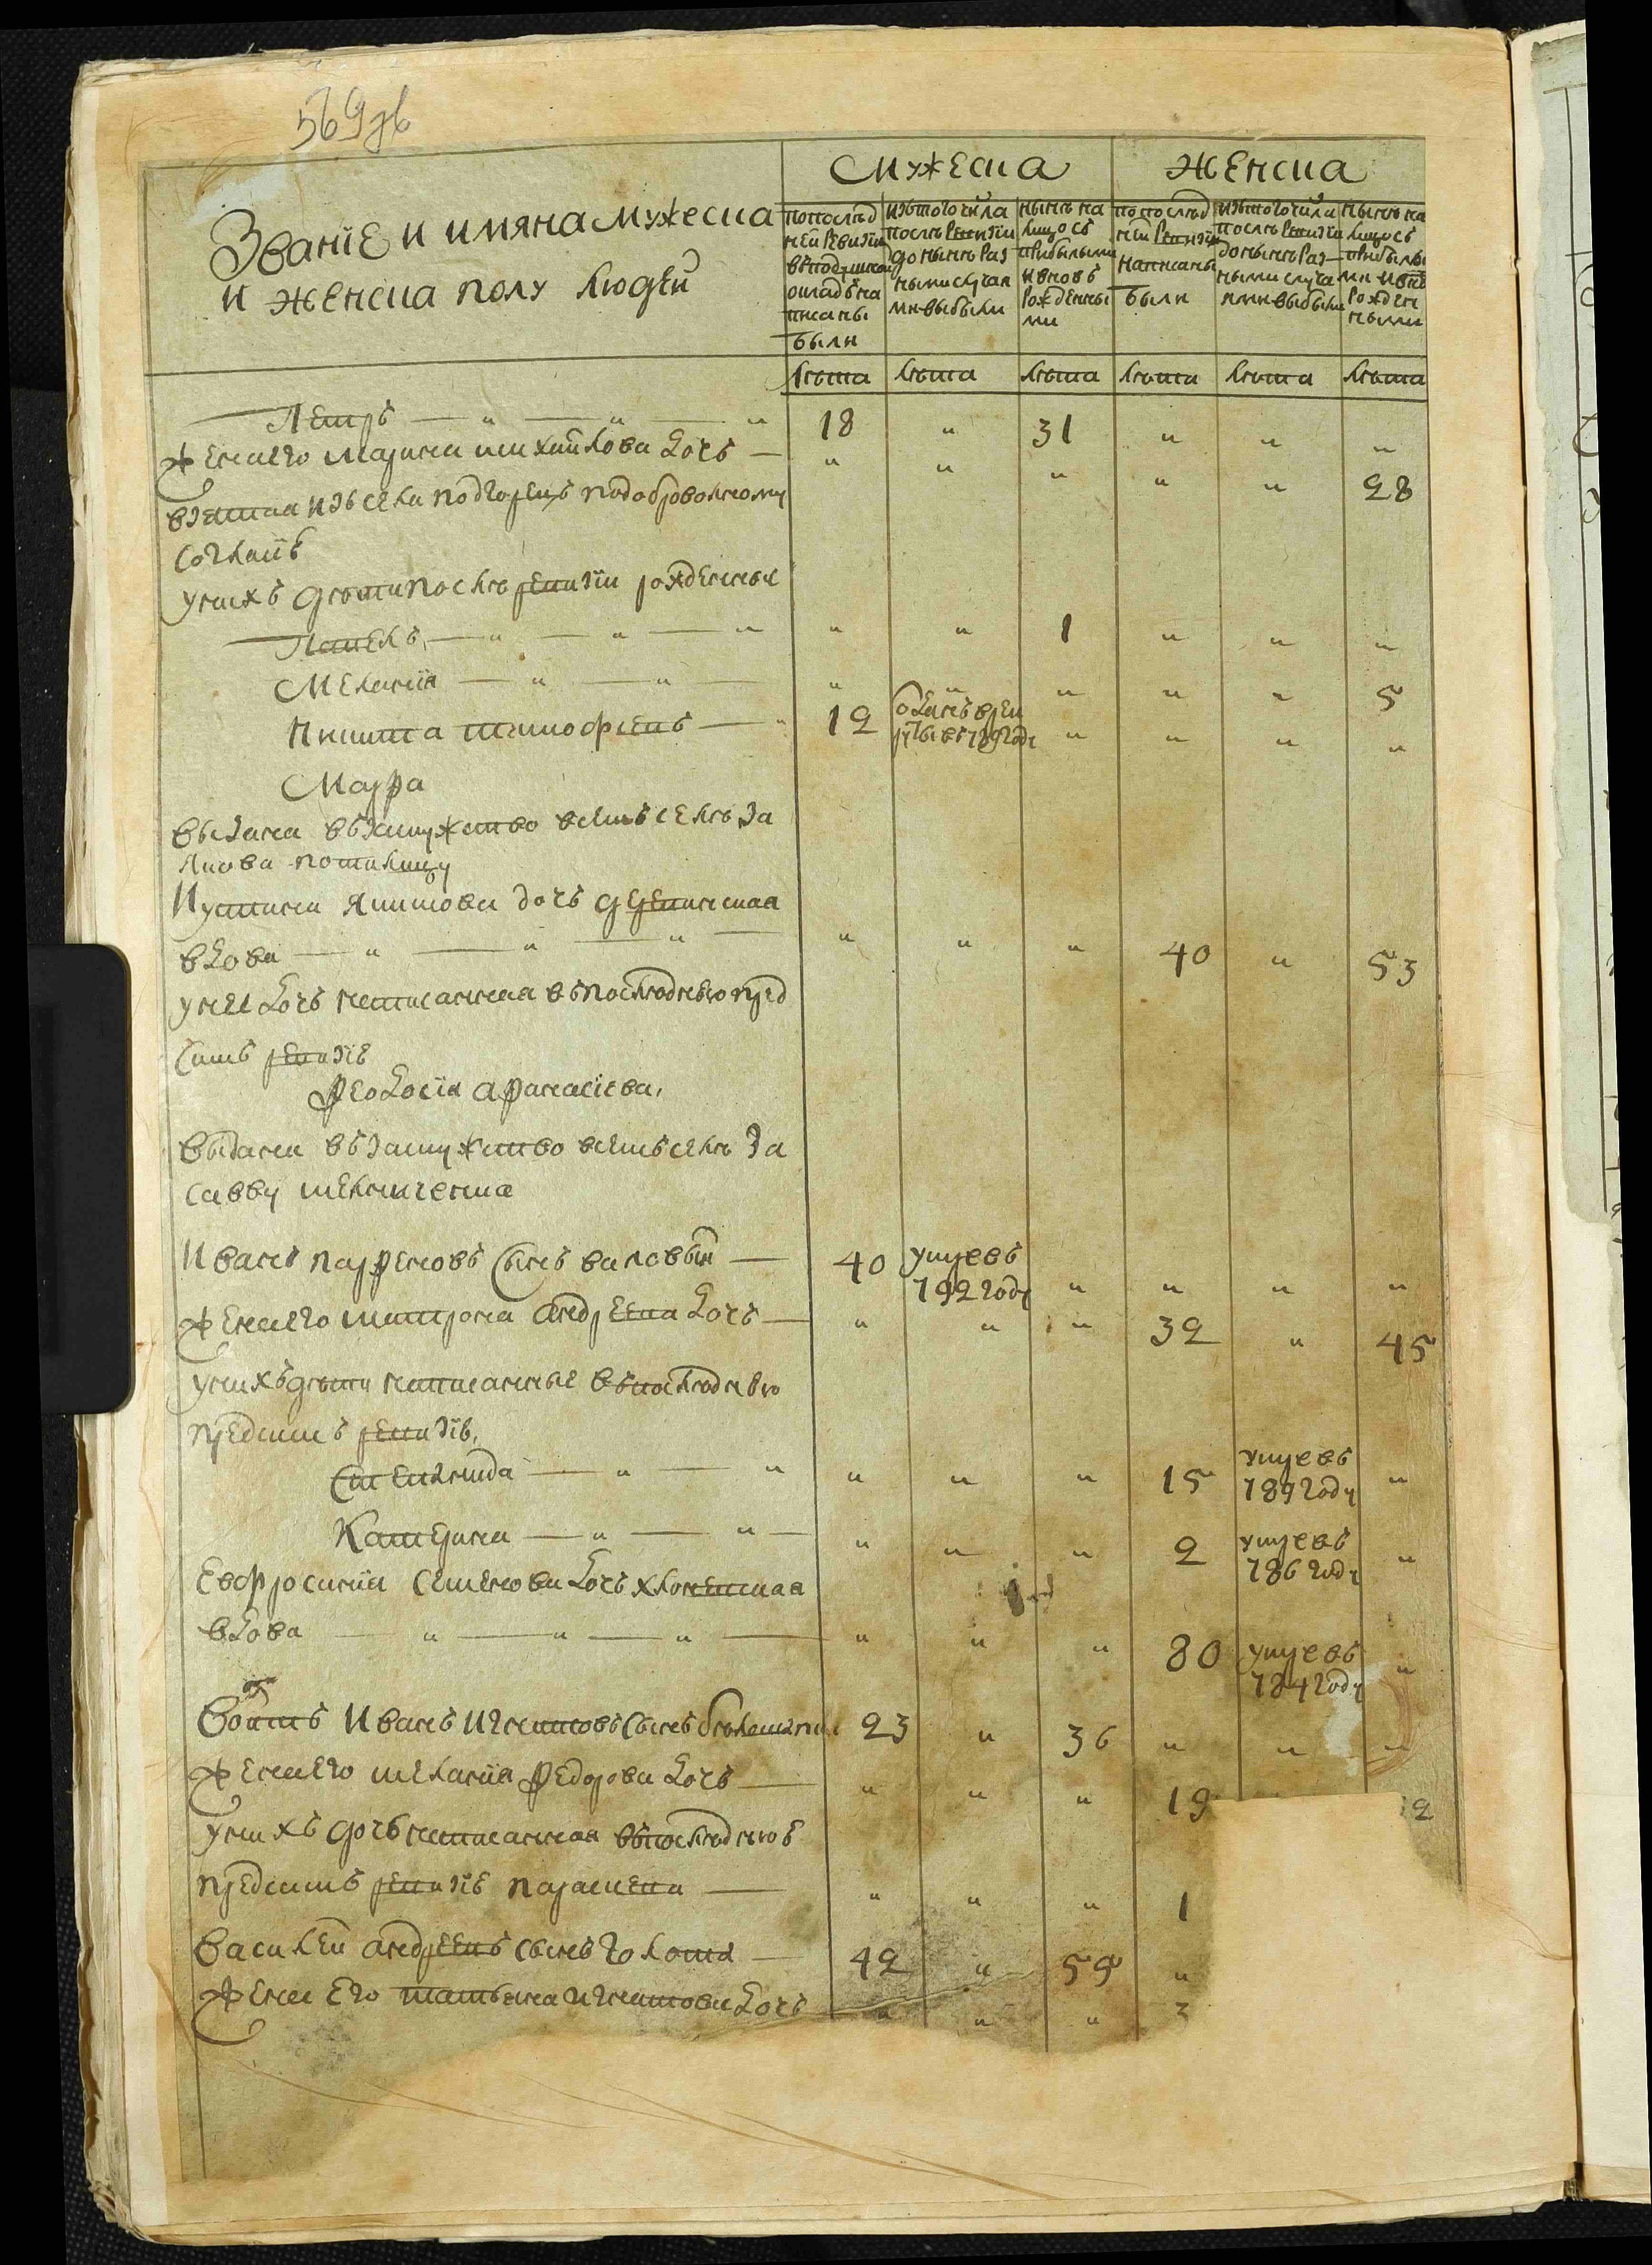 569 зв
Званіе и имяна мужеска и женска полу людей
Мужеска
Женска
по последней ревизии в подушной оклад написаны были
изъ того числа после ревизіи до ныне разными случаями выбыли
ныне на лицо с прибылыми и вновь рожденными
по последней ревизіи написаны были
изъ того числа после ревизіи до ныне разными случаями выбыли
ныне на лицо с прибылыми и вновь рожденными
лета лета лета лета лета лета
Петръ — " — " — " 18 " 31 " " "
жена его марина михайлова дочь — " " " " " 28
взятая изъ села подгорецъ по добровольному
согласію
у нихъ дети после ревизіи рожденные
Павелъ — " — " — " " " 1 " " "
Меланія — " — " — " " " " " 5
Никита тимофеевъ — " 12 отданъ в рекруты въ 789 году " " " "
Мавра
выдана въ замужство в темъ селе за
якова
Иустина якимова дочь
вдова — " — " — " — " " " 40 " 53
у нея дочь написанная въ последнюю пред
симъ ревизіе
феодосіа афанасіева,
выдана въ замужство в темъ селе за
савву мельниченка
Иванъ парфеновъ сынъ валовый — 40 умре въ 792 году " " " "
жена его матрона андреева дочь — " " " 32 " 45
у нихъ дети написанные въ последнюю
предсимъ ревизіе,
Степанида — " — " " " " 15 умре въ 789 году "
Катерина — " — " — " " " 2 умре въ 786 году "
Евфросинія семенова дочь
вдова — " — " — " — " " " 80 умре въ 784 году "
Войтъ Иванъ Игнатовъ сынъ 23 " 36 " " "
жена его меланіа федорова дочь — " " " 19 2
у нихъ дочь написанная въ последнюю
предсимъ ревизіе параскева — " " " 1
Василей андреевъ сынъ голота — 42 " 55 "
жена его татьяна игнатова дочь " " " 3